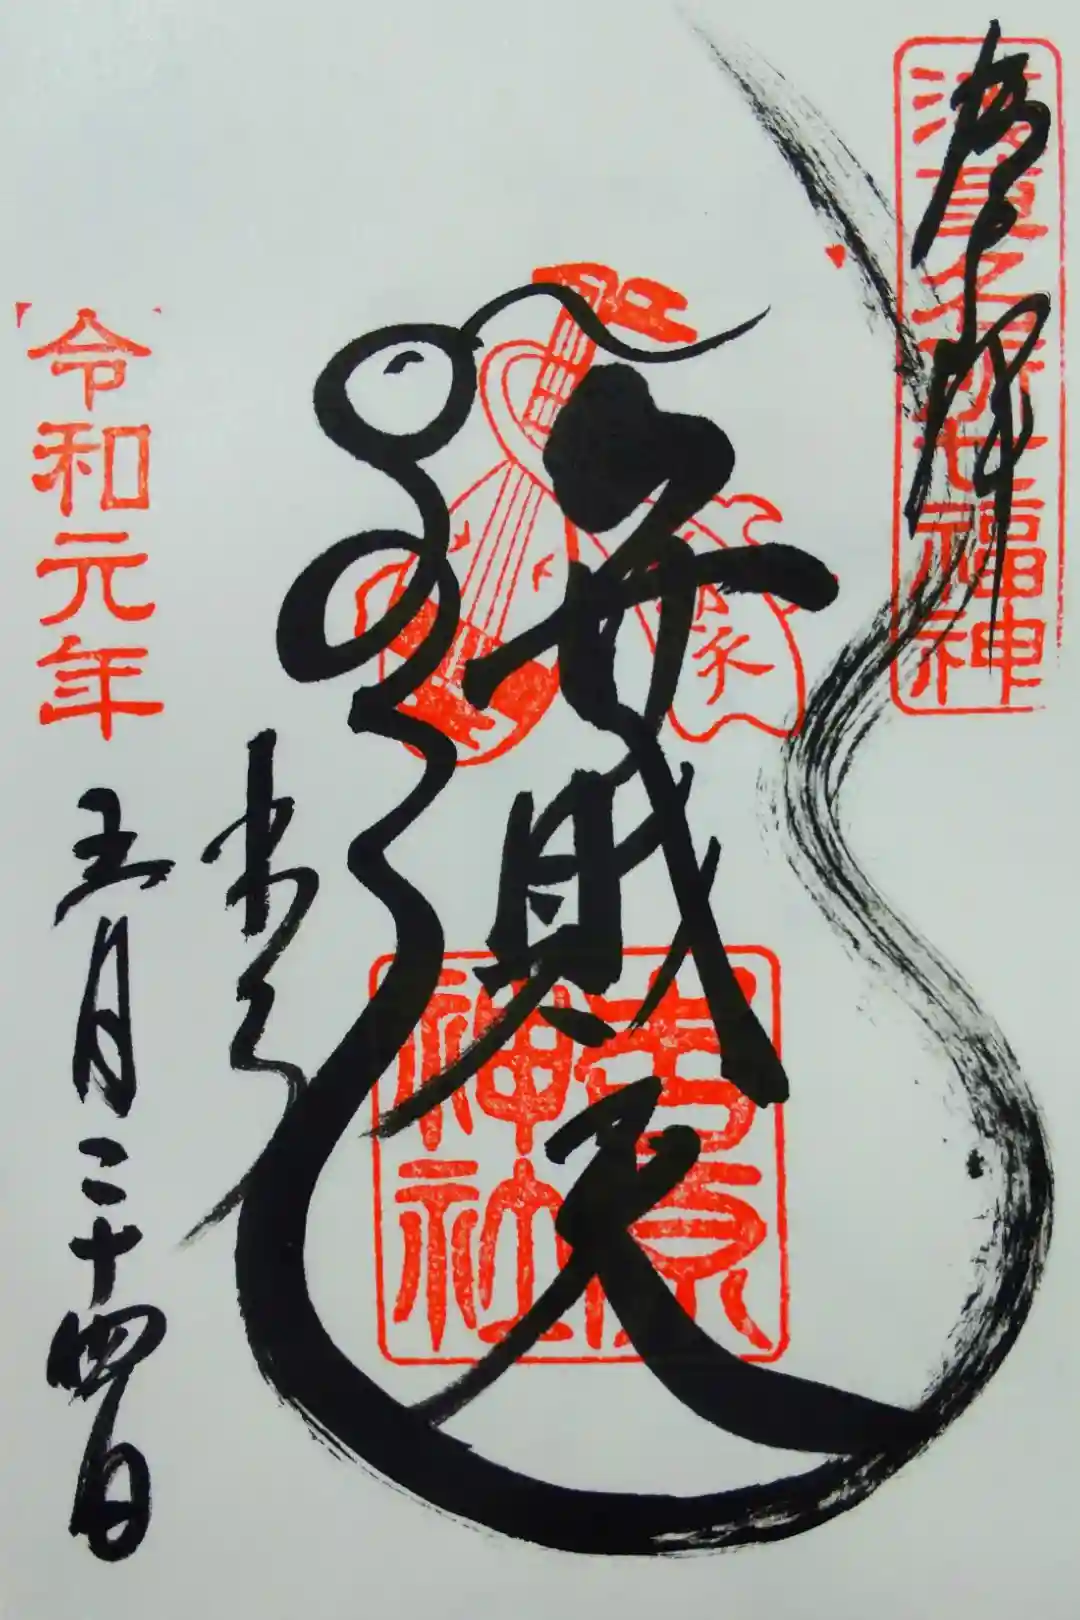 浅草名所七福神
奉拝
弁財天
吉原
神社
令和元年
五月二十四日